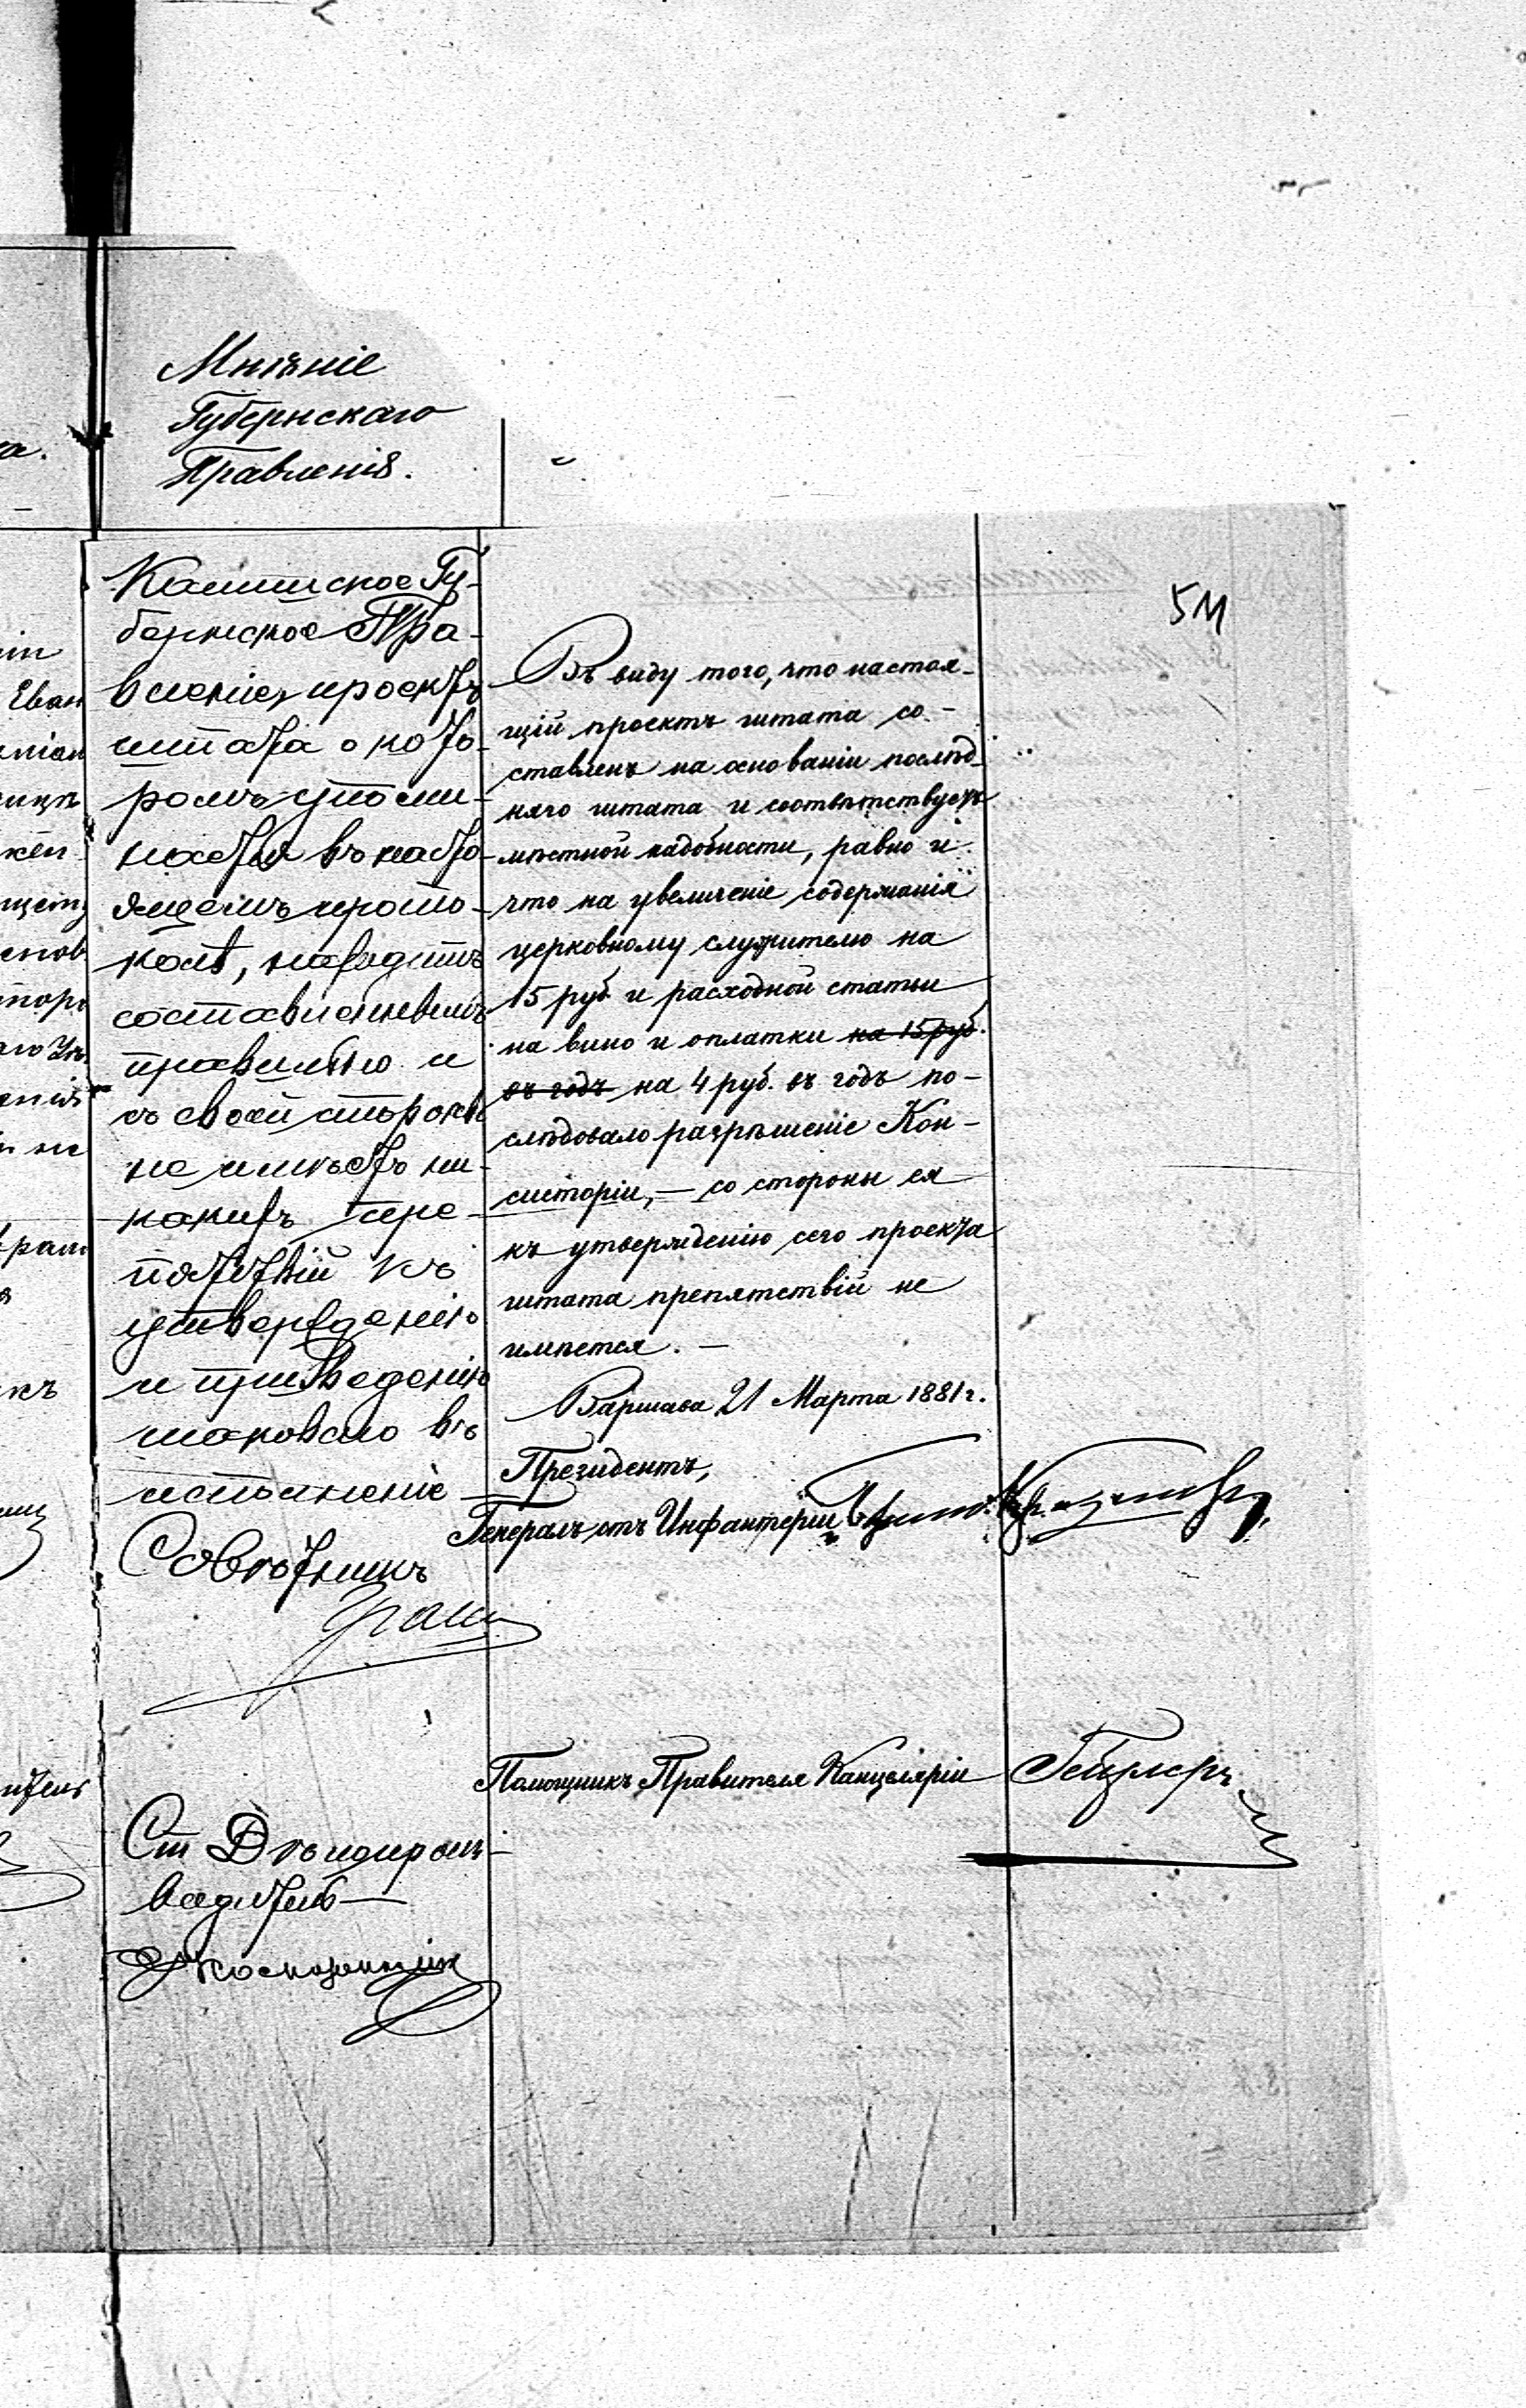 Мнѣніе
Губернскаго
Правленія.
Калишское Гу-
бернское Пра-
вленіе, проектъ
штата о кото-
ромъ упоми-
нается въ насто-
ящемъ прото-
колѣ, находитъ
составленнымъ
правильно и
съ своей стороны
не имѣетъ ни-
какихъ пре-
пятствій къ
утвержденію
и приведенію
таковаго въ
исполненіе
Совѣтникъ
Ст Дѣлопроиз-
водитель
511
Въ виду того, что настоя-
щій проектъ штата со-
ставленъ на основаніи послѣд-
няго штата и соотвѣтствуетъ
мѣстной надобности, равно и
что на увеличеніе содержанія
церковному служителю на
15 руб. и расходной статьи
на вино и оплатки на 15 руб.
въ годъ на 4 руб. въ годъ по-
слѣдовало разрѣшеніе Кон-
систоріи, — со стороны ея
къ утвержденію сего проекта
штата препятствій не
имѣется. —
Варшава 21 Марта 1881 г.
Президентъ,
Генералъ отъ Инфантеріи
Помощникъ Правителя Канцеляріи